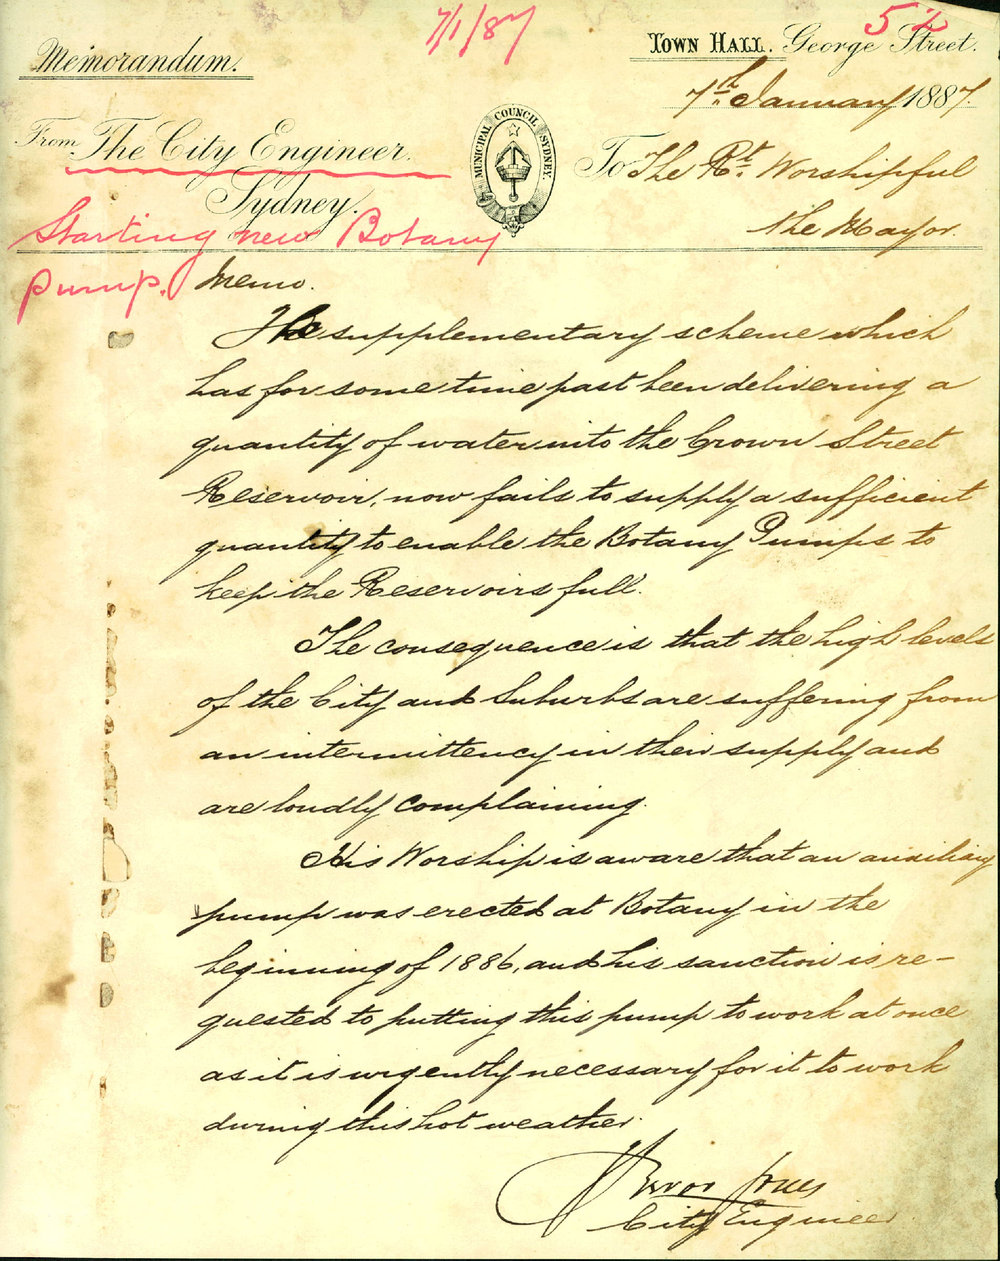 7/1/87
52
Memorandum.
TOWN HALL. George Street.
7th January 1887.
From The City Engineer.
Sydney.
MUNICIPAL COUNCIL SYDNEY.
To The Rt. Worshipful
the Mayor.
Starting new Botany
pump.
Memo.
The supplementary scheme which
has for some time past been delivering a
quantity of water into the Crown Street
Reservoir, now fails to supply a sufficient
quantity to enable the Botany Pumps to
keep the Reservoirs full.
The consequence is that the high levels
of the City and Suburbs are suffering from
an intermittency in their supply and
are loudly complaining.
His Worship is aware that an auxiliary
pump was erected at Botany in the
beginning of 1886, and his sanction is re-
quested to putting this pump to work at once
as it is urgently necessary for it to work
during this hot weather.
Trevor Jones
City Engineer